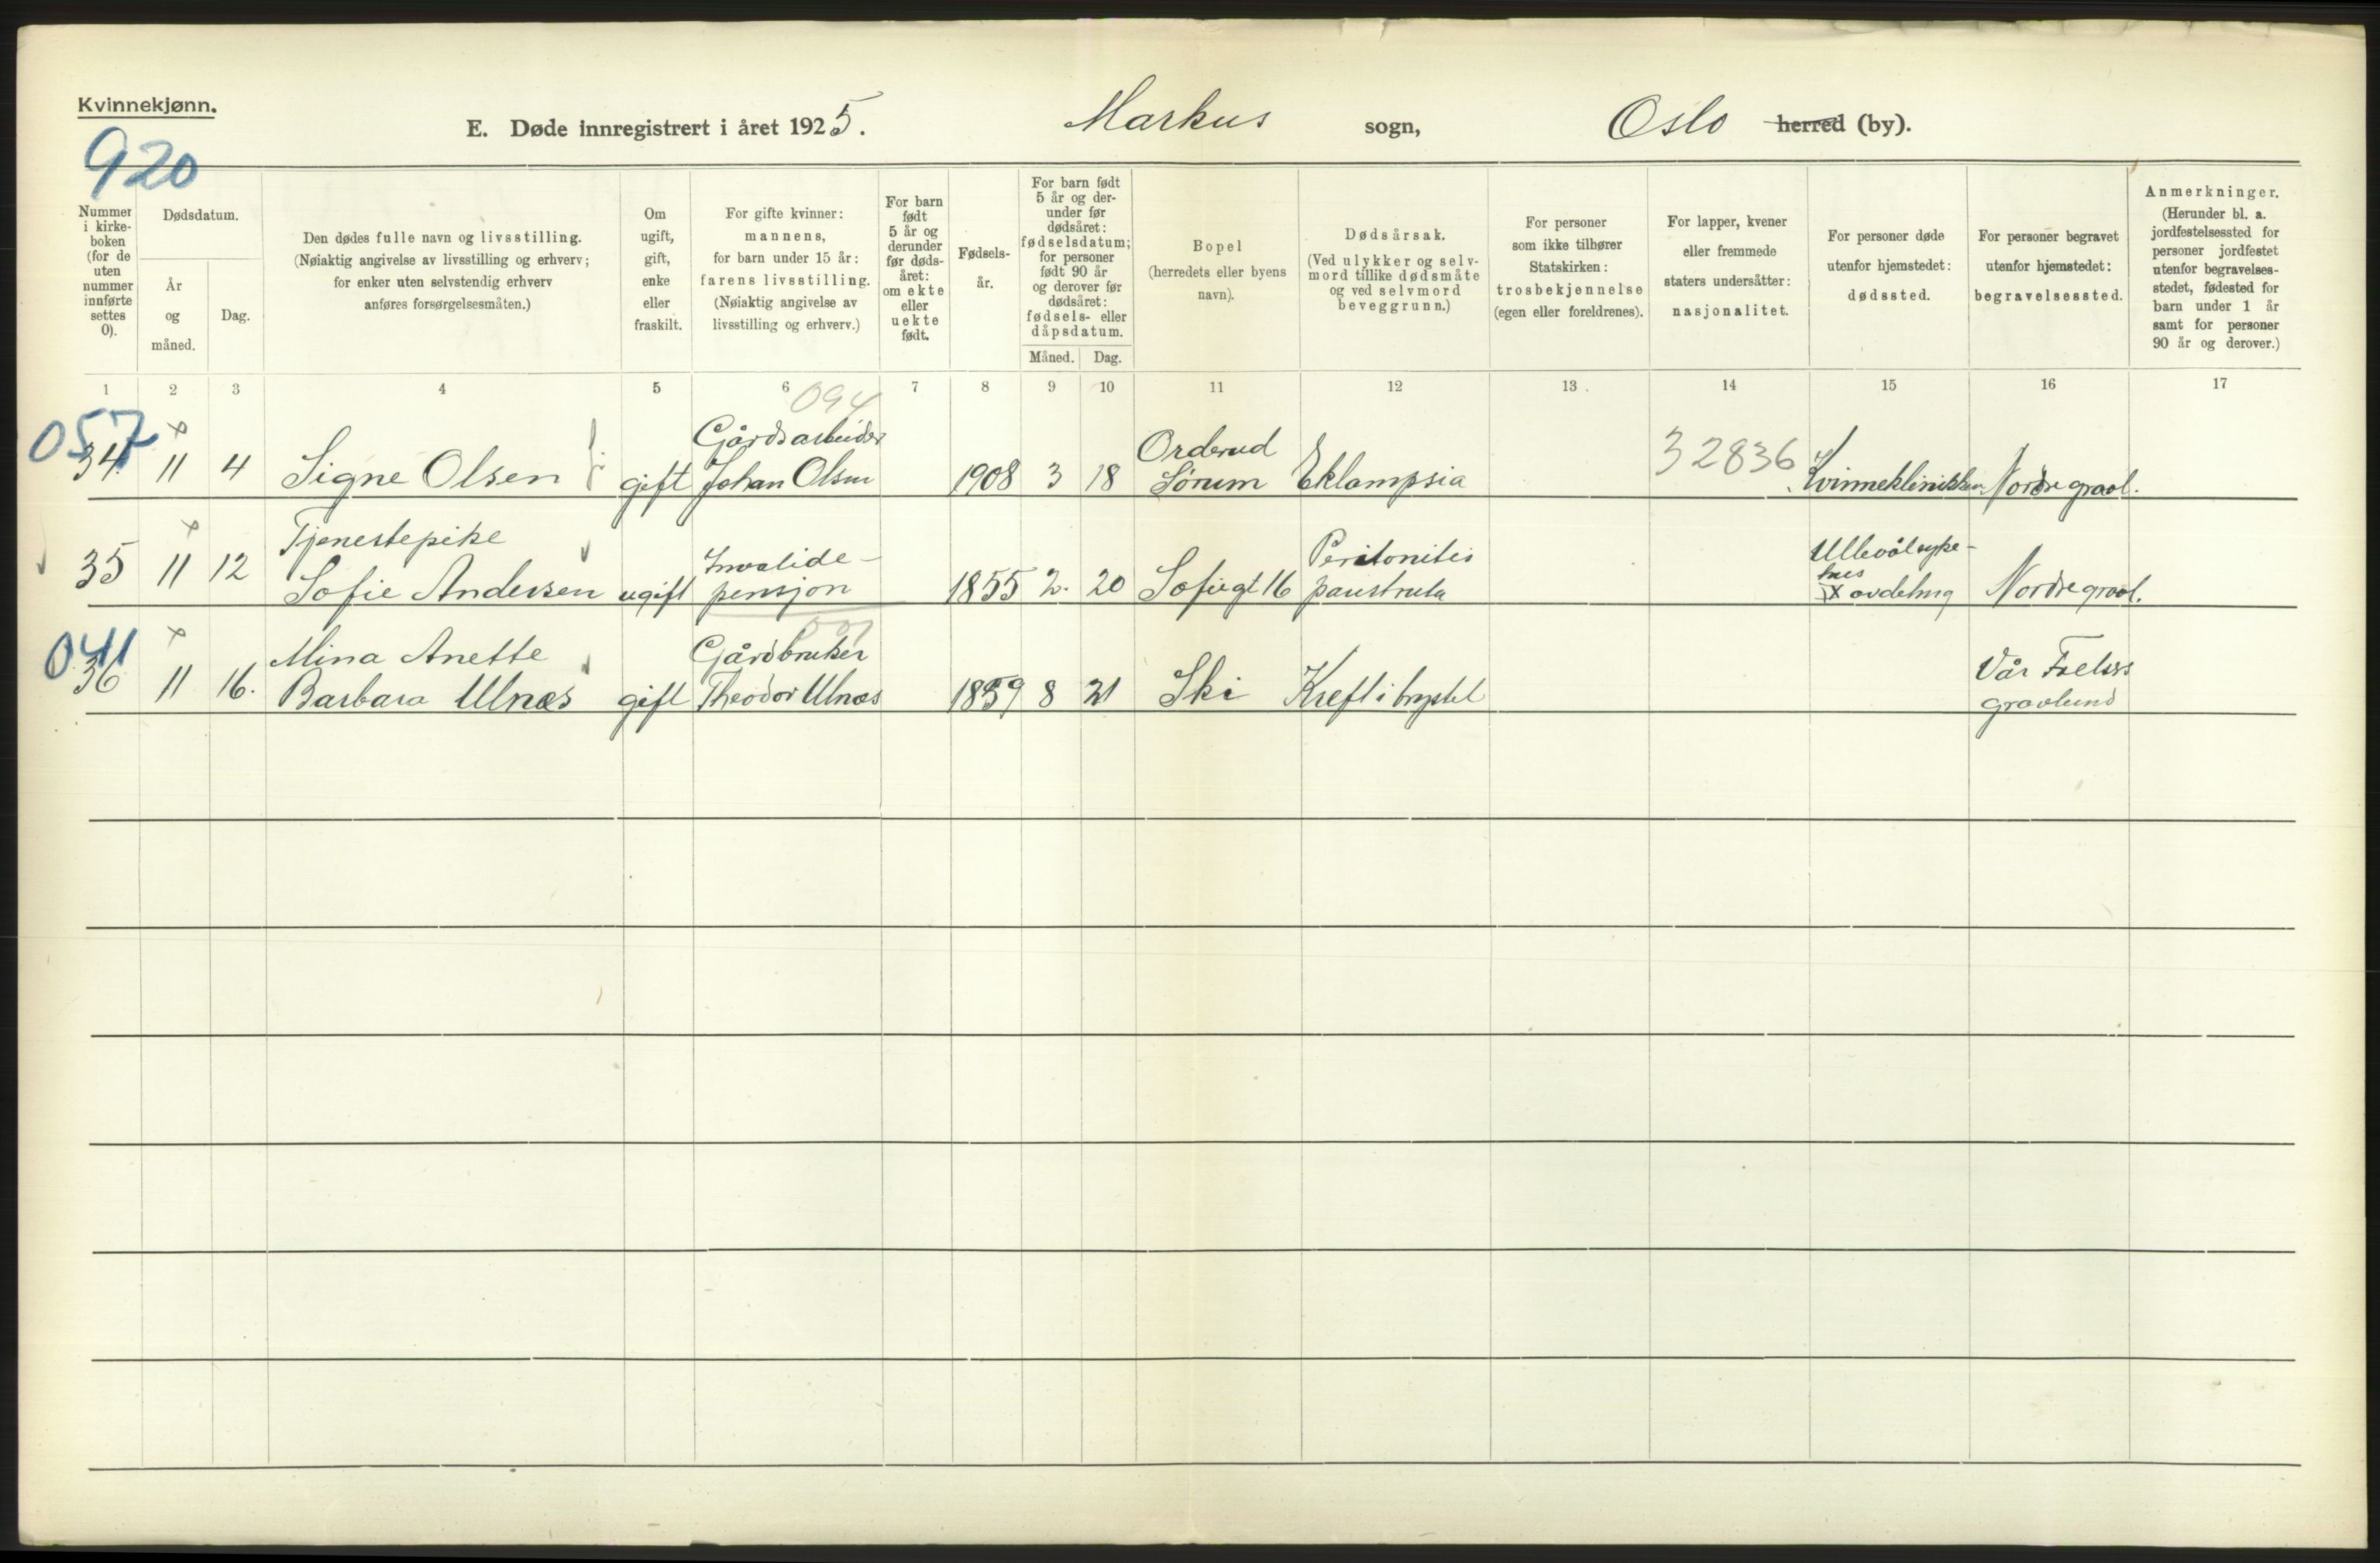 Kvinnekjønn.
920
E. Døde innregistrert i året 1925. Markus sogn, Oslo herred (by).
Nummer i kirke-boken (for de uten nummer innførte settes 0).
Dødsdatum.
År og måned.
Dag.
Den dødes fulle navn og livsstilling.
(Nøiaktig angivelse av livsstilling og erhverv;
for enker uten selvstendig erhverv
anføres forsørgelsesmåten.)
Om ugift, gift, enke eller fraskilt.
For gifte kvinner:
mannens,
for barn under 15 år:
farens livsstilling.
(Nøiaktig angivelse av
livsstilling og erhverv.)
For barn født 5 år og derunder før døds-året: om ekte eller uekte født.
Fødsels-år.
For barn født 5 år og der-under før dødsåret: fødselsdatum; for personer født 90 år og derover før dødsåret: fødsels- eller dåpsdatum.
Måned. Dag.
Bopel
(herredets eller byens
navn).
Dødsårsak.
(Ved ulykker og selv-
mord tillike dødsmåte
og ved selvmord
beveggrunn.)
For personer
som ikke tilhører
Statskirken:
trosbekjennelse
(egen eller foreldrenes).
For lapper, kvener
eller fremmede
staters undersåtter:
nasjonalitet.
For personer døde
utenfor hjemstedet:
dødssted.
For personer begravet
utenfor hjemstedet:
begravelsessted.
Anmerkninger.
(Herunder bl. a.
jordfestelsessted for
personer jordfestet
utenfor begravelses-
stedet, fødested for
barn under 1 år
samt for personer
90 år og derover.)
1 2 3 4 5 6 7 8 9 10 11 12 13 14 15 16 17
094
057 Gårdsarbeider Orderud
34. 11 4 Signe Olsen gift Johan Olsen 1908 3 18 Sørum Eklampsia 32836 Kvinneklinikken Nordre gravl.
Tjenestepike Invalide- Peritonitis Ullevål syke-
hus
35 11 12 Sofie Andersen ugift pensjon 1855 2. 20 Sofiegt 16 IX avdeling Nordre gravl.
001
041 Mina Anette Gårdbruker Vår Frelsers
36 11 16. Barbara Ulnæs gift Theodor Ulnæs 1859 8 21 Ski Kreft i brystet gravlund